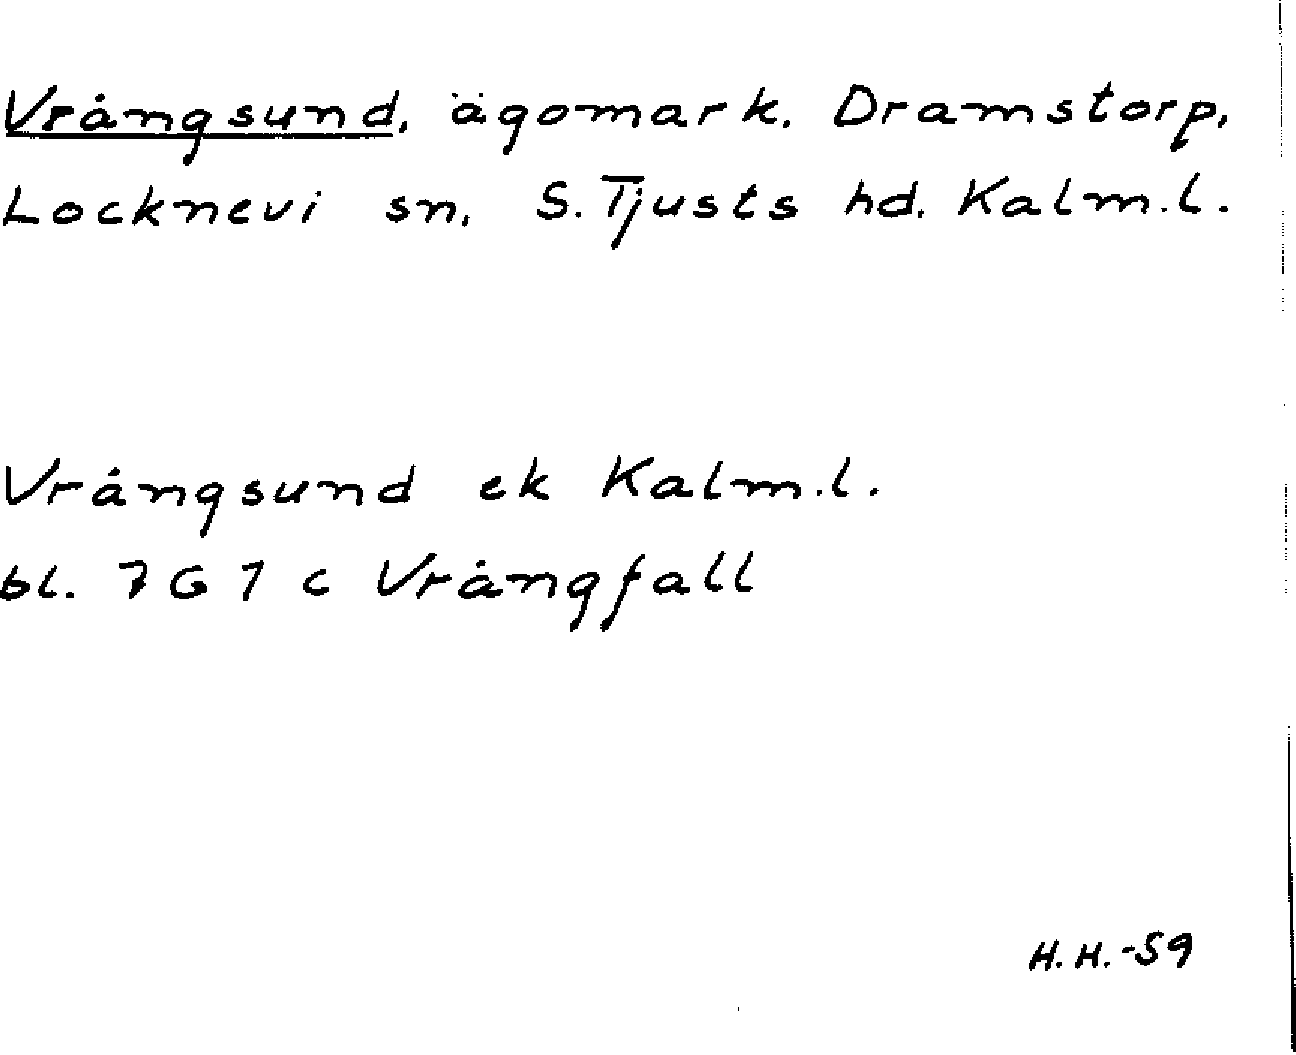 Vrångsund, ägomark, Dramstorp,
Locknevi sn, S. Tjusts hd. Kalm.l.
Vrångsund ek Kalm.l.
bl. 7 G 1 c Vrångfall
H.H.-59